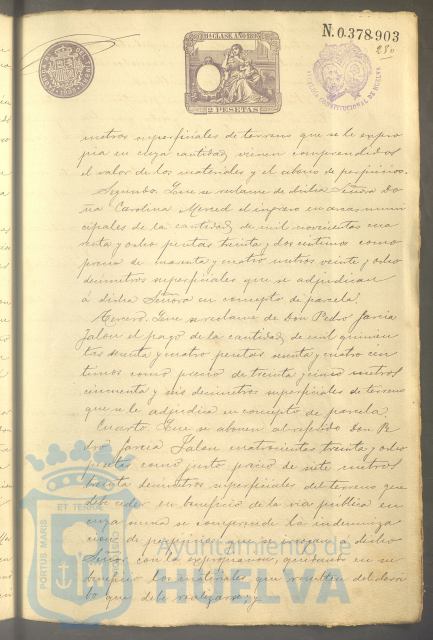 N. 0.378.903
11ª CLASE AÑO 189
230
2 PESETAS
CONSTITUCIONAL DE HUELVA
metros superficiales de terreno que se le expro
pia en cuya cantidad vienen comprendidos
el valor de los materiales y el abono de perjuicios.
Segundo. Que se reclame de dicha Señora Do
ña Carolina Merced el ingreso en arcas muni
cipales de la cantidad de mil novecientas
y ocho pesetas treinta y dos centimos como
precio de y cuatro metros veinte y ocho
decimetros superficiales que se adjudican
á dicha Señora en concepto de parcela.
Tercero. Que se reclame de Don Pedro Garcia
Jalon el pago de la cantidad de mil quinien
tas y cuatro pesetas y cuatro cen
timos como precio de treinta y cinco metros
cincuenta y seis decimetros superficiales de terreno
que se le adjudica en concepto de parcela.
Cuarto. Que se abonen al referido Don Pe
dro Garcia Jalon cuatrocientas treinta y ocho
pesetas como justo precio de siete metros
treinta decimetros superficiales del terreno que
debe ceder en beneficio de la via publica en
cuya suma se comprende la indemniza
cion de perjuicios que se irrogan a dicho
Señor con la expropiacion, quedando en su
beneficio los materiales que resulten del derri
bo que debe realizarse; y
PORTUS MARIS
ET TERRAE
Ayuntamiento de
HUELVA